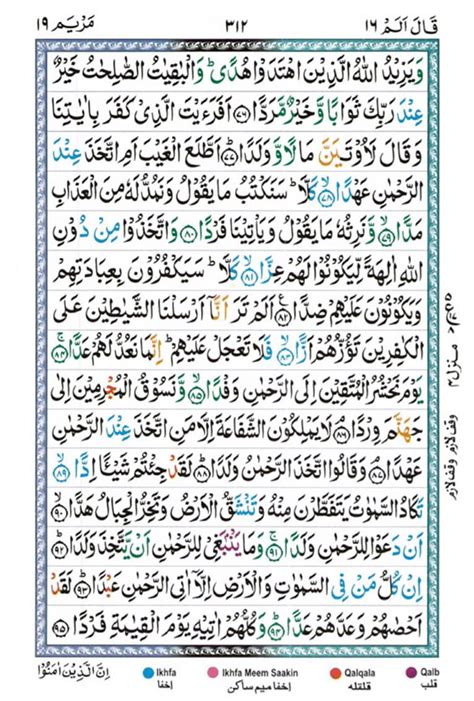 قَالَ اَلَمْ ١٦ ٣١٢ مَرْيَم ١٩
وَيَزِيْدُ اللّٰهُ الَّذِيْنَ اهْتَدَوْا هُدًى ؕ وَالْبٰقِيٰتُ الصّٰلِحٰتُ خَيْرٌ
عِنْدَ رَبِّكَ ثَوَابًا وَّخَيْرٌ مَّرَدًّا ﴿۷۶﴾ اَفَرَءَيْتَ الَّذِىْ كَفَرَ بِاٰيٰتِنَا
وَقَالَ لَاُوْتَيَنَّ مَالًا وَّوَلَدًا ﴿۷۷﴾ اَطَّلَعَ الْغَيْبَ اَمِ اتَّخَذَ عِنْدَ
الرَّحْمٰنِ عَهْدًا ﴿۷۸﴾ كَلَّا ؕ سَنَكْتُبُ مَا يَقُوْلُ وَنَمُدُّ لَهٗ مِنَ الْعَذَابِ
مَدًّا ﴿۷۹﴾ وَّنَرِثُهٗ مَا يَقُوْلُ وَيَاْتِيْنَا فَرْدًا ﴿۸۰﴾ وَاتَّخَذُوْا مِنْ دُوْنِ
اللّٰهِ اٰلِهَةً لِّيَكُوْنُوْا لَهُمْ عِزًّا ﴿۸۱﴾ كَلَّا ؕ سَيَكْفُرُوْنَ بِعِبَادَتِهِمْ
وَيَكُوْنُوْنَ عَلَيْهِمْ ضِدًّا ﴿۸۲﴾ اَلَمْ تَرَ اَنَّاۤ اَرْسَلْنَا الشَّيٰطِيْنَ عَلَى
الْكٰفِرِيْنَ تَؤُزُّهُمْ اَزًّا ﴿۸۳﴾ فَلَا تَعْجَلْ عَلَيْهِمْ ؕ اِنَّمَا نَعُدُّ لَهُمْ عَدًّا ﴿۸۴﴾
يَوْمَ نَحْشُرُ الْمُتَّقِيْنَ اِلَى الرَّحْمٰنِ وَفْدًا ﴿۸۵﴾ وَّنَسُوْقُ الْمُجْرِمِيْنَ اِلٰى
جَهَنَّمَ وِرْدًا ﴿۸۶﴾ لَا يَمْلِكُوْنَ الشَّفَاعَةَ اِلَّا مَنِ اتَّخَذَ عِنْدَ الرَّحْمٰنِ
عَهْدًا ﴿۸۷﴾ وَقَالُوا اتَّخَذَ الرَّحْمٰنُ وَلَدًا ﴿۸۸﴾ لَقَدْ جِئْتُمْ شَيْـًٔا اِدًّا ﴿۸۹﴾
تَكَادُ السَّمٰوٰتُ يَتَفَطَّرْنَ مِنْهُ وَتَنْشَقُّ الْاَرْضُ وَتَخِرُّ الْجِبَالُ هَدًّا ﴿۹۰﴾
اَنْ دَعَوْا لِلرَّحْمٰنِ وَلَدًا ﴿۹۱﴾ وَمَا يَنْۢبَغِىْ لِلرَّحْمٰنِ اَنْ يَّتَّخِذَ وَلَدًا ﴿۹۲﴾
اِنْ كُلُّ مَنْ فِى السَّمٰوٰتِ وَالْاَرْضِ اِلَّاۤ اٰتِى الرَّحْمٰنِ عَبْدًا ﴿۹۳﴾ لَقَدْ
اَحْصٰهُمْ وَعَدَّهُمْ عَدًّا ﴿۹۴﴾ وَكُلُّهُمْ اٰتِيْهِ يَوْمَ الْقِيٰمَةِ فَرْدًا ﴿۹۵﴾
منزل ۴
وقف لازم وقف لازم
اِنَّ الَّذِيْنَ اٰمَنُوْا
Ikhfa Ikhfa Meem Saakin Qalqala Qalb
اخفا اخفا ميم ساكن قلقله قلب